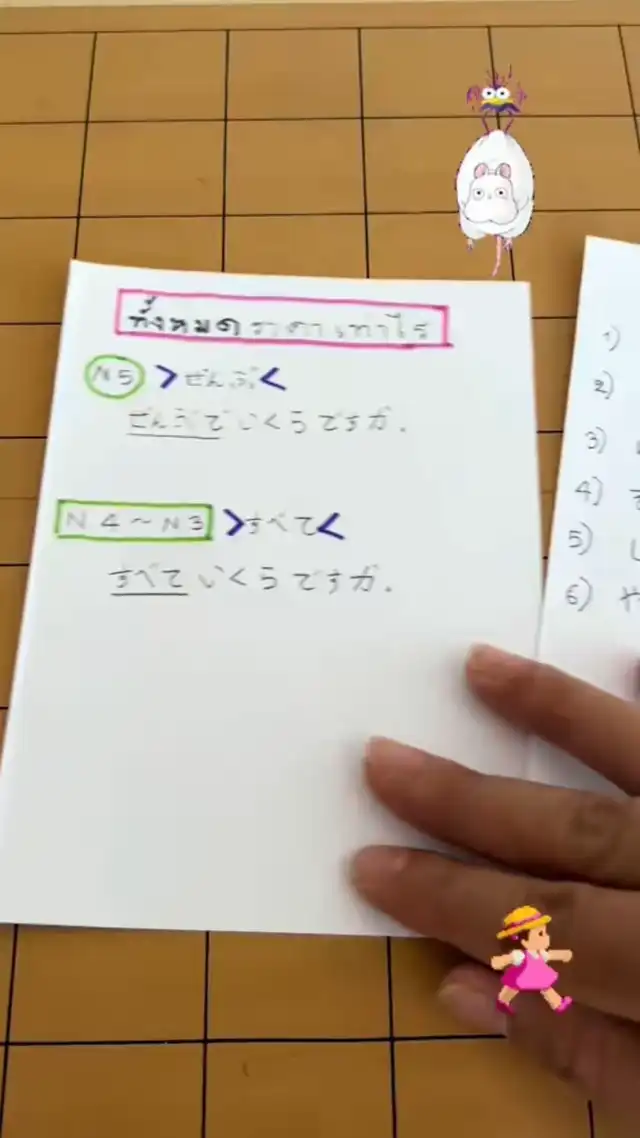 ทั้งหมด ราคาเท่าไร
N5 >ぜんぶ<
ぜんぶでいくらですか.
N4~N3 >すべて<
すべていくらですか.
1)
2)
3)
4)
5) し
6) や